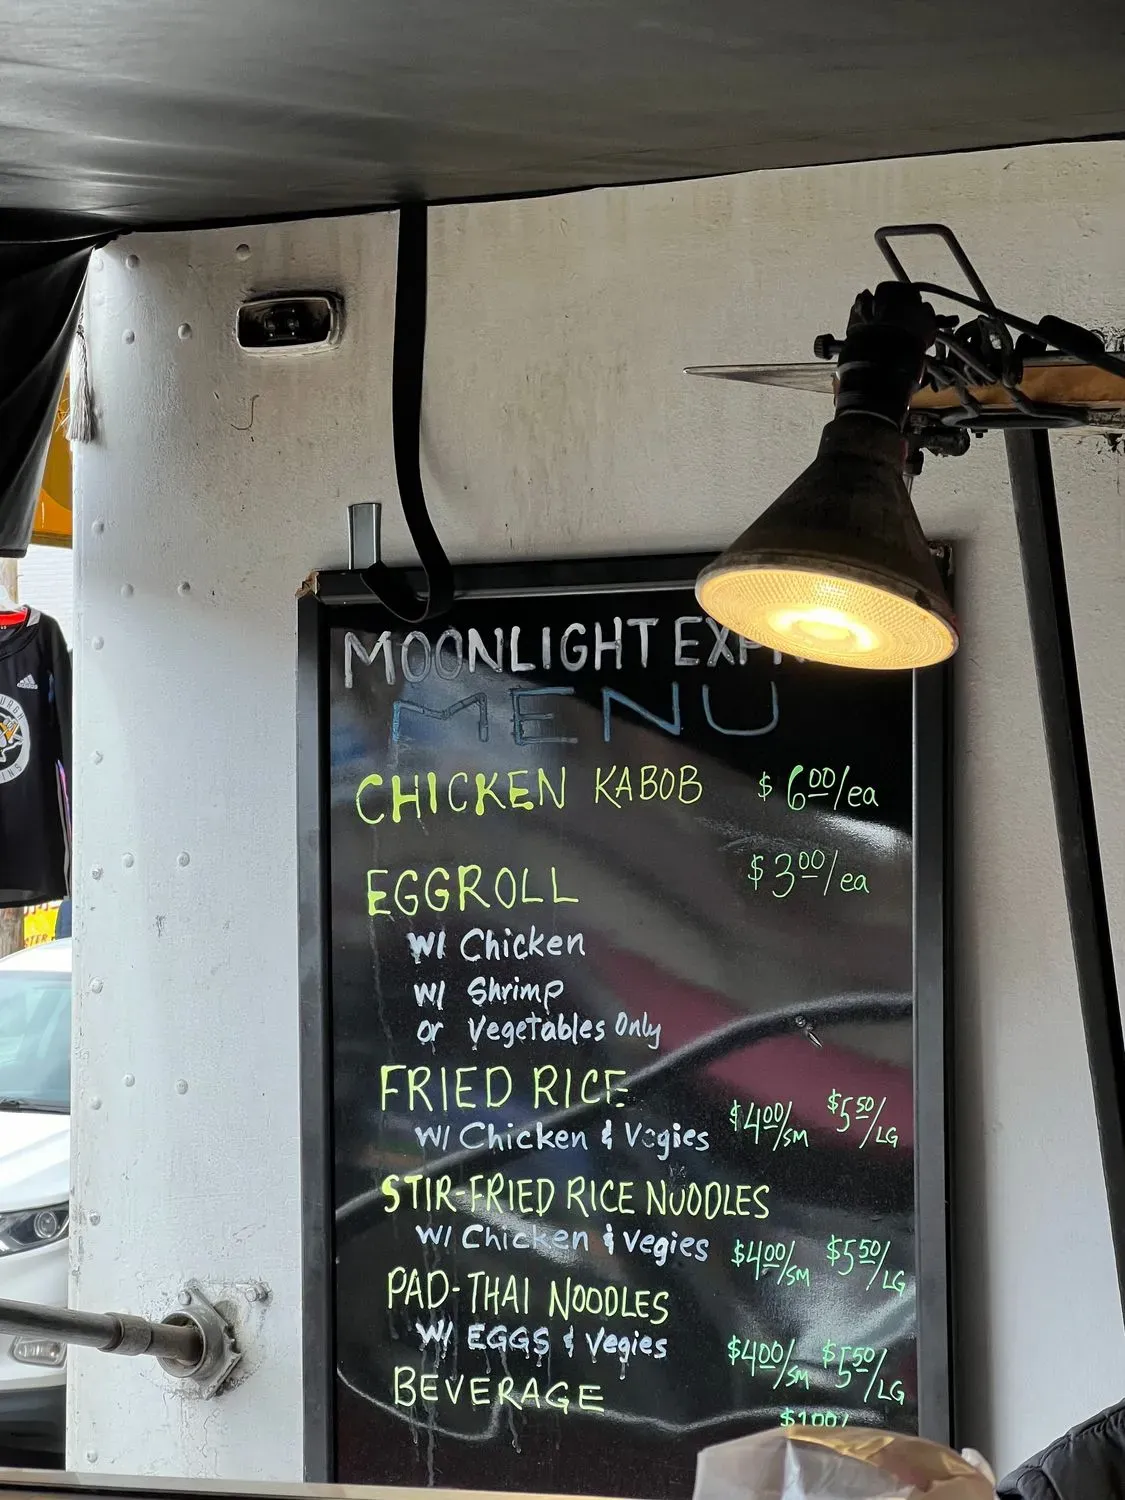 MOONLIGHT
MENU
CHICKEN KABOB $6.00/ea
EGGROLL $3.00/ea
W/ Chicken
W/ Shrimp
or Vegetables Only
FRIED RICE
W/ Chicken & Vegies $4.00/SM $5.50/LG
STIR-FRIED RICE NUODLES
W/ Chicken & Vegies $4.00/SM $5.50/LG
PAD-THAI NOODLES
W/ EGGS & Vegies $4.00/SM $5.50/LG
BEVERAGE
adidas